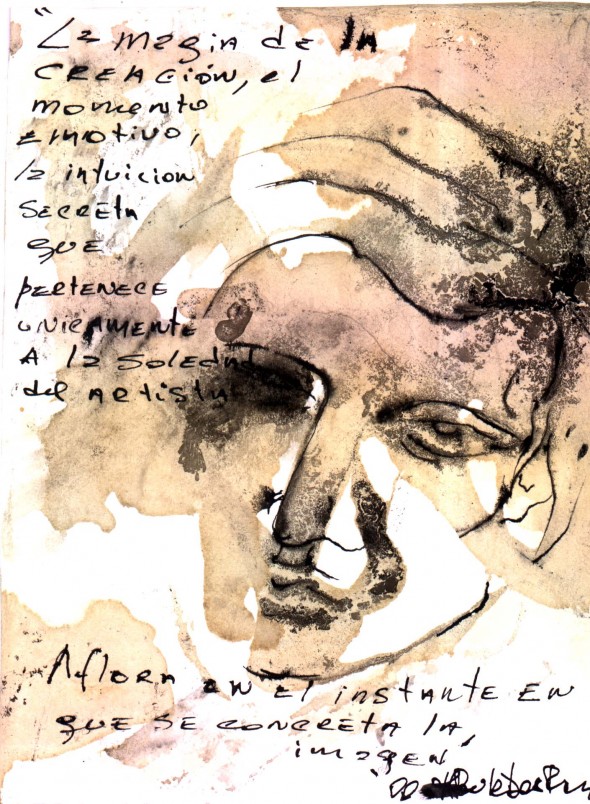 "La magia de la
CREACIÓN, el
momento
EMOTIVO,
la intuicion
SECRETA
que
pertenece
unicamente
A la SOLEDAD
del artista
Aflora en el instante en
que se concreta la
imagen"